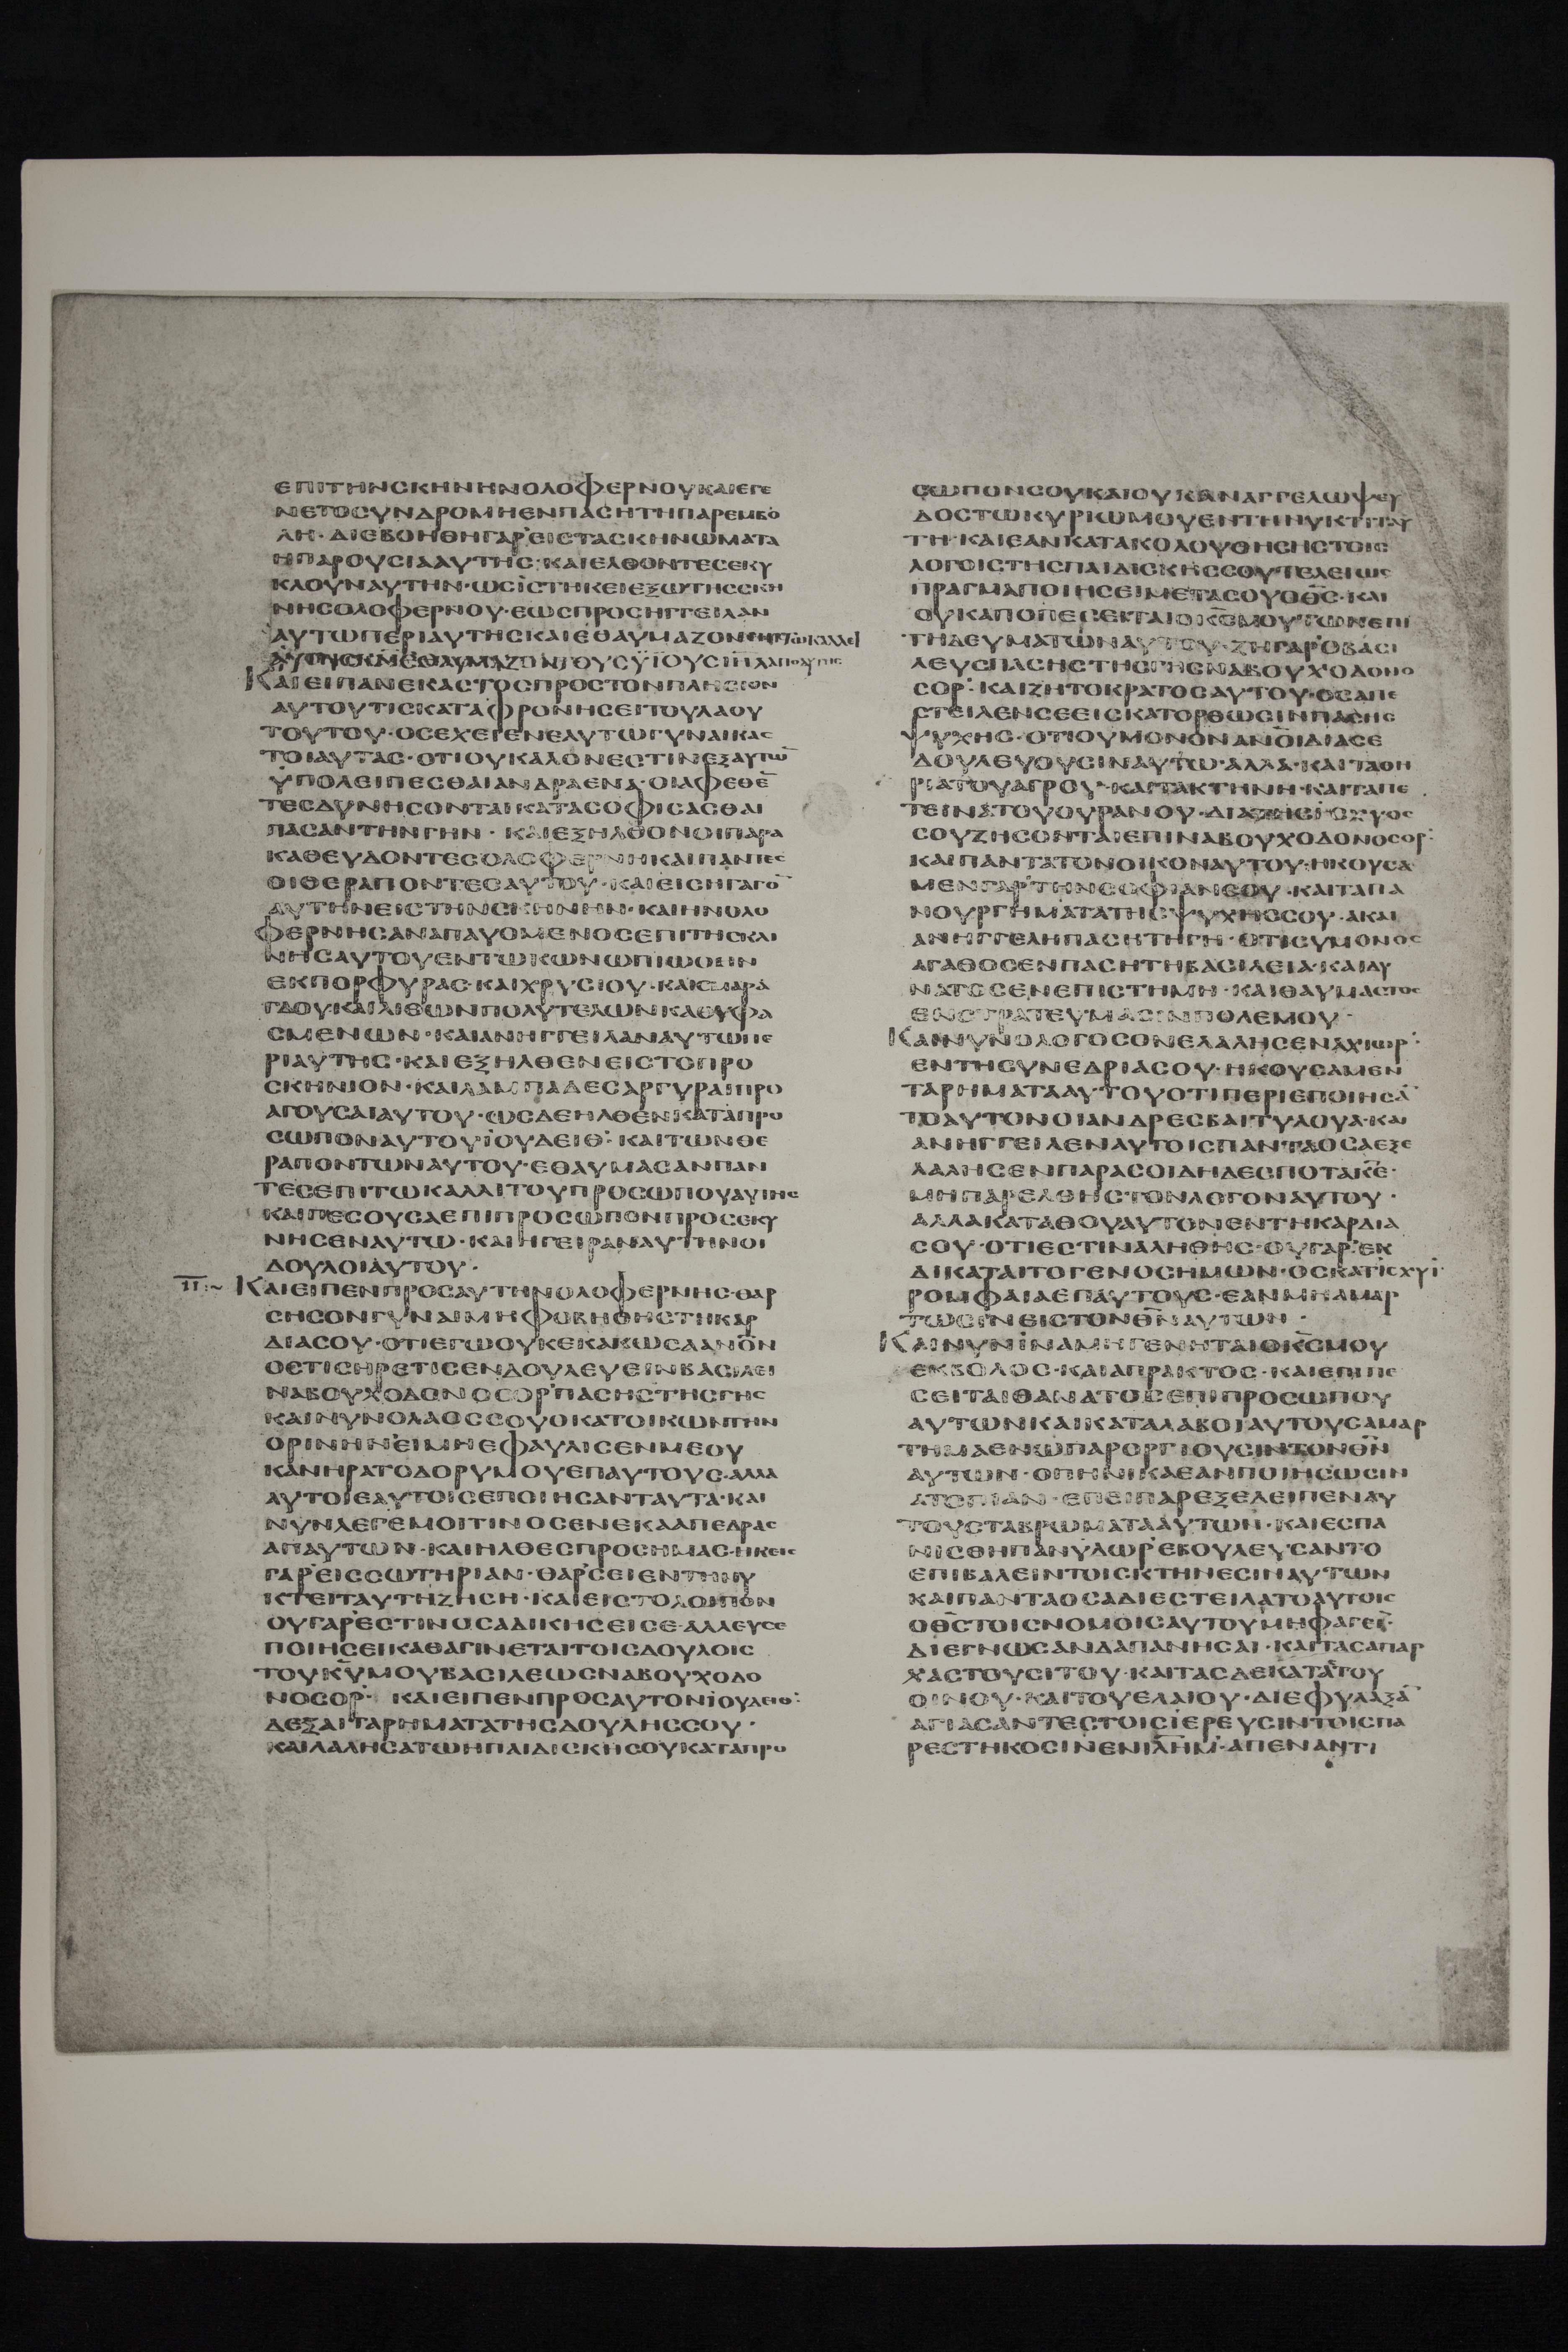 ΕΠΙΤΗΝϹΚΗΝΗΝΟΛΟΦΕΡΝΟΥΚΑΙΕΓΕ
ΝΕΤΟϹΥΝΔΡΟΜΗΕΝΠΑϹΗΤΗΠΑΡΕΜΒΟ
ΛΗ·ΔΙΕΒΟΗΘΗΓΑΡ᾿ΕΙϹΤΑϹΚΗΝΩΜΑΤΑ
ΗΠΑΡΟΥϹΙΑΑΥΤΗϹ·ΚΑΙΕΛΘΟΝΤΕϹΕΚΥ
ΚΛΟΥΝΑΥΤΗΝ·ΩϹΪϹΤΗΚΕΙΕΞΩΤΗϹϹΚΗ
ΝΗϹΟΛΟΦΕΡΝΟΥ·ΕΩϹΠΡΟϹΗΓΓΕΙΛΑΝ
ΑΥΤΩΠΕΡΙΑΥΤΗϹΚΑΙΕΘΑΥΜΑΖΟΝΕΠΙΤΩΚΑΛΛΕΙ
ΑΥΤΗϹΚΑΙΕΘΑΥΜΑΖΟΝΤΟΥϹΫΙΟΥϹΙΗΛΑΠΟΑΥΤΗϹ
ΚΑΙΕΙΠΑΝΕΚΑϹΤΟϹΠΡΟϹΤΟΝΠΛΗϹΙΟΝ
ΑΥΤΟΥΤΙϹΚΑΤΑΦΡΟΝΗϹΕΙΤΟΥΛΑΟΥ
ΤΟΥΤΟΥ·ΟϹΕΧΕΙΕΝΕΑΥΤΩΓΥΝΑΙΚΑϹ
ΤΟΙΑΥΤΑϹ·ΟΤΙΟΥΚΑΛΟΝΕϹΤΙΝΕΞΑΥΤΩ̅
ΫΠΟΛΕΙΠΕϹΘΑΙΑΝΔΡΑΕΝΑ·ΟΙΑΦΕΘΕ̅
ΤΕϹΔΥΝΗϹΟΝΤΑΙΚΑΤΑϹΟΦΙϹΑϹΘΑΙ
ΠΑϹΑΝΤΗΝΓΗΝ·ΚΑΙΕΞΗΛΘΟΝΟΙΠΑΡΑ
ΚΑΘΕΥΔΟΝΤΕϹΟΛΟΦΕΡΝΗΚΑΙΠΑΝΤΕϹ
ΟΙΘΕΡΑΠΟΝΤΕϹΑΥΤΟΥ·ΚΑΙΕΙϹΗΓΑΓΟ̅
ΑΥΤΗΝΕΙϹΤΗΝϹΚΗΝΗΝ·ΚΑΙΗΝΟΛΟ
ΦΕΡΝΗϹΑΝΑΠΑΥΟΜΕΝΟϹΕΠΙΤΗϹΚΛΙ
ΝΗϹΑΥΤΟΥΕΝΤΩΚΩΝΩΠΙΩΟΗΝ
ΕΚΠΟΡΦΥΡΑϹ·ΚΑΙΧΡΥϹΙΟΥ·ΚΑΙϹΜΑΡΑ
ΓΔΟΥ·ΚΑΙΛΙΘΩΝΠΟΛΥΤΕΛΩΝΚΑΘΥΦΑ
ϹΜΕΝΩΝ·ΚΑΙΑΝΗΓΓΕΙΛΑΝΑΥΤΩΠΕ
ΡΙΑΥΤΗϹ·ΚΑΙΕΞΗΛΘΕΝΕΙϹΤΟΠΡΟ
ϹΚΗΝΙΟΝ·ΚΑΙΛΑΜΠΑΔΕϹΑΡΓΥΡΑΙΠΡΟ
ΑΓΟΥϹΑΙΑΥΤΟΥ·ΩϹΔΕΗΛΘΕΝΚΑΤΑΠΡΟ
ϹΩΠΟΝΑΥΤΟΥΪΟΥΔΕΙΘ᾿·ΚΑΙΤΩΝΘΕ
ΡΑΠΟΝΤΩΝΑΥΤΟΥ·ΕΘΑΥΜΑϹΑΝΠΑΝ
ΤΕϹΕΠΙΤΩΚΑΛΛΙΤΟΥΠΡΟϹΩΠΟΥΑΥΤΗϹ
ΚΑΙΠΕϹΟΥϹΑΕΠΙΠΡΟϹΩΠΟΝΠΡΟϹΕΚΥ
ΝΗϹΕΝΑΥΤΩ·ΚΑΙΗΓΕΙΡΑΝΑΥΤΗΝΟΙ
ΔΟΥΛΟΙΑΥΤΟΥ·
ΙΙ̅:~ ΚΑΙΕΙΠΕΝΠΡΟϹΑΥΤΗΝΟΛΟΦΕΡΝΗϹ·ΘΑΡ
ϹΗϹΟΝΓΥΝΑΙΜΗΦΟΒΗΘΗϹΤΗΚΑΡ
ΔΙΑϹΟΥ·ΟΤΙΕΓΩΟΥΚΕΚΑΚΩϹΑΑΝ̅Ο̅Ν
ΟϹΤΙϹΗΡΕΤΙϹΕΝΔΟΥΛΕΥΕΙΝΒΑϹΙΛΕΙ
ΝΑΒΟΥΧΟΔΟΝΟϹΟΡ᾿ΠΑϹΗϹΤΗϹΓΗϹ
ΚΑΙΝΥΝΟΛΑΟϹϹΟΥΟΚΑΤΟΙΚΩΝΤΗΝ
ΟΡΙΝΗΝΕΙΜΗΕΦΑΥΛΙϹΕΝΜΕΟΥ
ΚΑΝΗΡΑΤΟΔΟΡΥΜΟΥΕΠΑΥΤΟΥϹ·ΑΛΛΑ
ΑΥΤΟΙΕΑΥΤΟΙϹΕΠΟΙΗϹΑΝΤΑΥΤΑ·ΚΑΙ
ΝΥΝΛΕΓΕΜΟΙΤΙΝΟϹΕΝΕΚΑΑΠΕΔΡΑϹ
ΑΠΑΥΤΩΝ·ΚΑΙΗΛΘΕϹΠΡΟϹΗΜΑϹ·ΗΚΕΙϹ
ΓΑΡ᾿ΕΙϹϹΩΤΗΡΙΑΝ·ΘΑΡ᾿ϹΕΙΕΝΤΗΝΥ
ΚΤΕΙΤΑΥΤΗΖΗϹΗ·ΚΑΙΕΙϹΤΟΛΟΙΠΟΝ
ΟΥΓΑΡ᾿ΕϹΤΙΝΟϹΑΔΙΚΗϹΕΙϹΕ·ΑΛΛΕΥϹΕ
ΠΟΙΗϹΕΙΚΑΘΑΓΙΝΕΤΑΙΤΟΙϹΔΟΥΛΟΙϹ
ΤΟΥΚ̅Υ̅ΜΟΥΒΑϹΙΛΕΩϹΝΑΒΟΥΧΟΔΟ
ΝΟϹΟΡ᾿· ΚΑΙΕΙΠΕΝΠΡΟϹΑΥΤΟΝΪΟΥΔΕΙΘ᾿:
ΔΕΞΑΙΤΑΡΗΜΑΤΑΤΗϹΔΟΥΛΗϹϹΟΥ·
ΚΑΙΛΑΛΗϹΑΤΩΗΠΑΙΔΙϹΚΗϹΟΥΚΑΤΑΠΡΟ
ϹΩΠΟΝϹΟΥΚΑΙΟΥΚΑΝΑΓΓΕΛΩΨΕΥ
ΔΟϹΤΩΚΥΡΙΩΜΟΥΕΝΤΗΝΥΚΤΙΤΑΥ
ΤΗ·ΚΑΙΕΑΝΚΑΤΑΚΟΛΟΥΘΗϹΗϹΤΟΙϹ
ΛΟΓΟΙϹΤΗϹΠΑΙΔΙϹΚΗϹϹΟΥΤΕΛΕΙΩϹ
ΠΡΑΓΜΑΠΟΙΗϹΕΙΜΕΤΑϹΟΥΟΘ̅Ϲ̅·ΚΑΙ
ΟΥΚΑΠΟΠΕϹΕΙΤΑΙΟΚ̅Ϲ̅ΜΟΥΤΩΝΕΠΙ
ΤΗΔΕΥΜΑΤΩΝΑΥΤΟΥ·ΖΗΓΑΡ᾿ΟΒΑϹΙ
ΛΕΥϹΠΑϹΗϹΤΗϹΓΗϹΝΑΒΟΥΧΟΔΟΝΟ
ϹΟΡ᾿·ΚΑΙΖΗΤΟΚΡΑΤΟϹΑΥΤΟΥ·ΟϹΑΠΕ
ϹΤΕΙΛΕΝϹΕΕΙϹΚΑΤΟΡΘΩϹΙΝΠΑϹΗϹ
ΨΥΧΗϹ·ΟΤΙΟΥΜΟΝΟΝΑΝ̅Ο̅ΙΔΙΑϹΕ
ΔΟΥΛΕΥΟΥϹΙΝΑΥΤΩ·ΑΛΛΑ·ΚΑΙΤΑΘΗ
ΡΙΑΤΟΥΑΓΡΟΥ·ΚΑΙΤΑΚΤΗΝΗ·ΚΑΙΤΑΠΕ
ΤΕΙΝΑΤΟΥΟΥΡΑΝΟΥ·ΔΙΑΤΗϹΪϹΧΥΟϹ
ϹΟΥΖΗϹΟΝΤΑΙΕΠΙΝΑΒΟΥΧΟΔΟΝΟϹΟΡ᾿:
ΚΑΙΠΑΝΤΑΤΟΝΟΙΚΟΝΑΥΤΟΥ·ΗΚΟΥϹΑ
ΜΕΝΓΑΡ᾿ΤΗΝϹΟΦΙΑΝϹΟΥ·ΚΑΙΤΑΠΑ
ΝΟΥΡΓΗΜΑΤΑΤΗϹΨΥΧΗϹϹΟΥ·ΑΚΑΙ
ΑΝΗΓΓΕΛΗΠΑϹΗΤΗΓΗ·ΟΤΙϹΥΜΟΝΟϹ
ΑΓΑΘΟϹΕΝΠΑϹΗΤΗΒΑϹΙΛΕΙΑ·ΚΑΙΔΥ
ΝΑΤΟϹΕΝΕΠΙϹΤΗΜΗ·ΚΑΙΘΑΥΜΑϹΤΟϹ
ΕΝϹΤΡΑΤΕΥΜΑϹΙΝΠΟΛΕΜΟΥ·
ΚΑΙΝΥΝΟΛΟΓΟϹΟΝΕΛΑΛΗϹΕΝΑΧΙΩΡ᾿·
ΕΝΤΗϹΥΝΕΔΡΙΑϹΟΥ·ΗΚΟΥϹΑΜΕΝ
ΤΑΡΗΜΑΤΑΑΥΤΟΥΟΤΙΠΕΡΙΕΠΟΙΗϹΑ̅
ΤΟΑΥΤΟΝΟΙΑΝΔΡΕϹΒΑΙΤΥΛΟΥΑ·ΚΑΙ
ΑΝΗΓΓΕΙΛΕΝΑΥΤΟΙϹΠΑΝΤΑΟϹΑΕΞΕ
ΛΑΛΗϹΕΝΠΑΡΑϹΟΙΔΗΔΕϹΠΟΤΑΚ̅Ε̅·
ΜΗΠΑΡΕΛΘΗϹΤΟΝΛΟΓΟΝΑΥΤΟΥ·
ΑΛΛΑΚΑΤΑΘΟΥΑΥΤΟΝΕΝΤΗΚΑΡΔΙΑ
ϹΟΥ·ΟΤΙΕϹΤΙΝΑΛΗΘΗϹ·ΟΥΓΑΡ᾿ΕΚ
ΔΙΚΑΤΑΙΤΟΓΕΝΟϹΗΜΩΝ·ΟϹΚΑΤΙϹΧΥΪ
ΡΟΜΦΑΙΑΕΠΑΥΤΟΥϹ·ΕΑΝΜΗΑΜΑΡ
ΤΩϹΙΝΕΙϹΤΟΝΘ̅Ν̅ΑΥΤΩΝ·
ΚΑΙΝΥΝΪΝΑΜΗΓΕΝΗΤΑΙΟΚ̅Ϲ̅ΜΟΥ
ΕΚΒΟΛΟϹ·ΚΑΙΑΠΡΑΚΤΟϹ·ΚΑΙΕΠΙΠΕ
ϹΕΙΤΑΙΘΑΝΑΤΟϹΕΠΙΠΡΟϹΩΠΟΥ
ΑΥΤΩΝΚΑΙΚΑΤΑΛΑΒΟΙΑΥΤΟΥϹΑΜΑΡ
ΤΗΜΑΕΝΩΠΑΡΟΡΓΙΟΥϹΙΝΤΟΝΘ̅Ν̅
ΑΥΤΩΝ·ΟΠΗΝΙΚΑΕΑΝΠΟΙΗϹΩϹΙΝ
ΑΤΟΠΙΑΝ·ΕΠΕΙΠΑΡΕΞΕΛΕΙΠΕΝΑΥ
ΤΟΥϹΤΑΒΡΩΜΑΤΑΑΥΤΩΝ·ΚΑΙΕϹΠΑ
ΝΙϹΘΗΠΑΝΥΔΩΡ᾿ΕΒΟΥΛΕΥϹΑΝΤΟ
ΕΠΙΒΑΛΕΙΝΤΟΙϹΚΤΗΝΕϹΙΝΑΥΤΩΝ
ΚΑΙΠΑΝΤΑΟϹΑΔΙΕϹΤΕΙΛΑΤΟΑΥΤΟΙϹ
ΟΘ̅Ϲ̅ΤΟΙϹΝΟΜΟΙϹΑΥΤΟΥΜΗΦΑΓΕΙ̅·
ΔΙΕΓΝΩϹΑΝΔΑΠΑΝΗϹΑΙ·ΚΑΙΤΑϹΑΠΑΡ
ΧΑϹΤΟΥϹΙΤΟΥ·ΚΑΙΤΑϹΔΕΚΑΤΑϹΤΟΥ
ΟΙΝΟΥ·ΚΑΙΤΟΥΕΛΑΙΟΥ·ΔΙΕΦΥΛΑΞΑ̅
ΑΓΙΑϹΑΝΤΕϹΤΟΙϹΪΕΡΕΥϹΙΝΤΟΙϹΠΑ
ΡΕϹΤΗΚΟϹΙΝΕΝΙ̅Λ̅Η̅Μ̅·ΑΠΕΝΑΝΤΙ